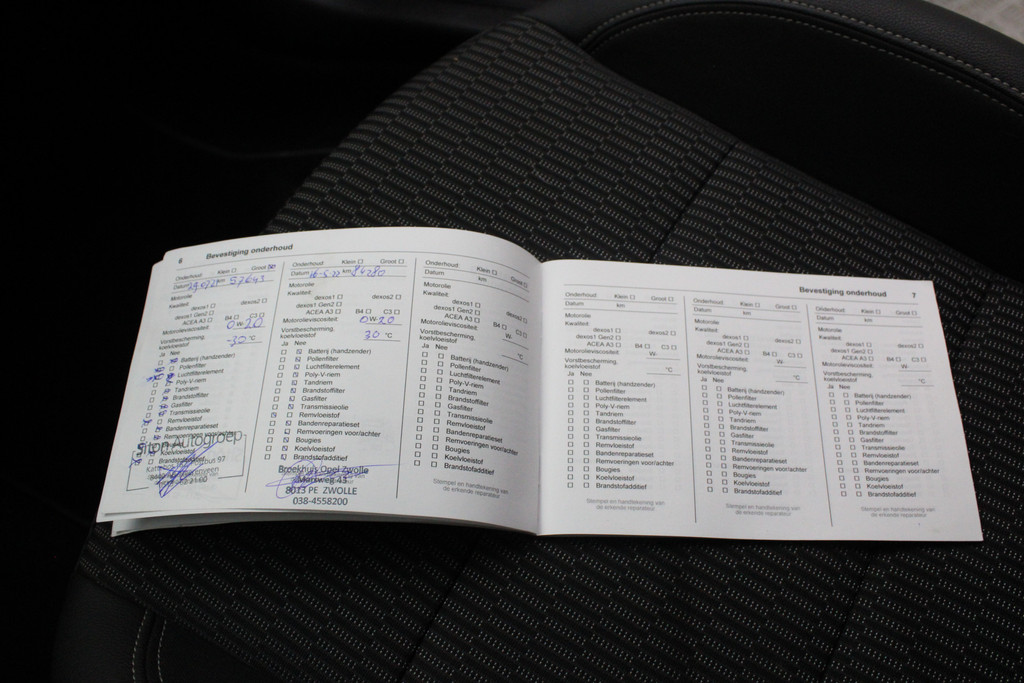 6 Bevestiging onderhoud
Onderhoud: Klein Groot
Datum km 57641
Motorolie
Kwaliteit:
dexos1 dexos2
dexos1 Gen2
ACEA A3 B4 C3
Motorolieviscositeit: 0 W- 20
Vorstbescherming,
koelvloeistof -30 °C
Ja Nee
Batterij (handzender)
Pollenfilter
Luchtfilterelement
Poly-V-riem
Tandriem
Brandstoffilter
Gasfilter
Transmissieolie
Remvloeistof
Bandenreparatieset
Koelvloeistof
Brandstofadditief
Autogroep
Onderhoud: Klein Groot
Datum 16-5-22 km 86280
Motorolie
Kwaliteit:
dexos1 dexos2
dexos1 Gen2
ACEA A3 B4 C3
Motorolieviscositeit: 0 W- 20
Vorstbescherming,
koelvloeistof 30 °C
Ja Nee
Batterij (handzender)
Pollenfilter
Luchtfilterelement
Poly-V-riem
Tandriem
Brandstoffilter
Gasfilter
Transmissieolie
Remvloeistof
Bandenreparatieset
Remvoeringen voor/achter
Bougies
Koelvloeistof
Brandstofadditief
Broekhuis Opel Zwolle
Marsweg 43
8013 PE ZWOLLE
038-4558200
Onderhoud: Klein Groot
Datum km
Motorolie
Kwaliteit:
dexos1 dexos2
dexos1 Gen2
ACEA A3 B4 C3
Motorolieviscositeit: W-
Vorstbescherming,
koelvloeistof °C
Ja Nee
Batterij (handzender)
Pollenfilter
Luchtfilterelement
Poly-V-riem
Tandriem
Brandstoffilter
Gasfilter
Transmissieolie
Remvloeistof
Bandenreparatieset
Remvoeringen voor/achter
Bougies
Koelvloeistof
Brandstofadditief
Stempel en handtekening van
de erkende reparateur
Bevestiging onderhoud 7
Onderhoud: Klein Groot
Datum km
Motorolie
Kwaliteit:
dexos1 dexos2
dexos1 Gen2
ACEA A3 B4 C3
Motorolieviscositeit: W-
Vorstbescherming,
koelvloeistof °C
Ja Nee
Batterij (handzender)
Pollenfilter
Luchtfilterelement
Poly-V-riem
Tandriem
Brandstoffilter
Gasfilter
Transmissieolie
Remvloeistof
Bandenreparatieset
Remvoeringen voor/achter
Bougies
Koelvloeistof
Brandstofadditief
Stempel en handtekening van
de erkende reparateur
Onderhoud: Klein Groot
Datum km
Motorolie
Kwaliteit:
dexos1 dexos2
dexos1 Gen2
ACEA A3 B4 C3
Motorolieviscositeit: W-
Vorstbescherming,
koelvloeistof °C
Ja Nee
Batterij (handzender)
Pollenfilter
Luchtfilterelement
Poly-V-riem
Tandriem
Brandstoffilter
Gasfilter
Transmissieolie
Remvloeistof
Bandenreparatieset
Remvoeringen voor/achter
Bougies
Koelvloeistof
Brandstofadditief
Stempel en handtekening van
de erkende reparateur
Onderhoud: Klein Groot
Datum km
Motorolie
Kwaliteit:
dexos1 dexos2
dexos1 Gen2
ACEA A3 B4 C3
Motorolieviscositeit: W-
Vorstbescherming,
koelvloeistof °C
Ja Nee
Batterij (handzender)
Pollenfilter
Luchtfilterelement
Poly-V-riem
Tandriem
Brandstoffilter
Gasfilter
Transmissieolie
Remvloeistof
Bandenreparatieset
Remvoeringen voor/achter
Bougies
Koelvloeistof
Brandstofadditief
Stempel en handtekening van
de erkende reparateur